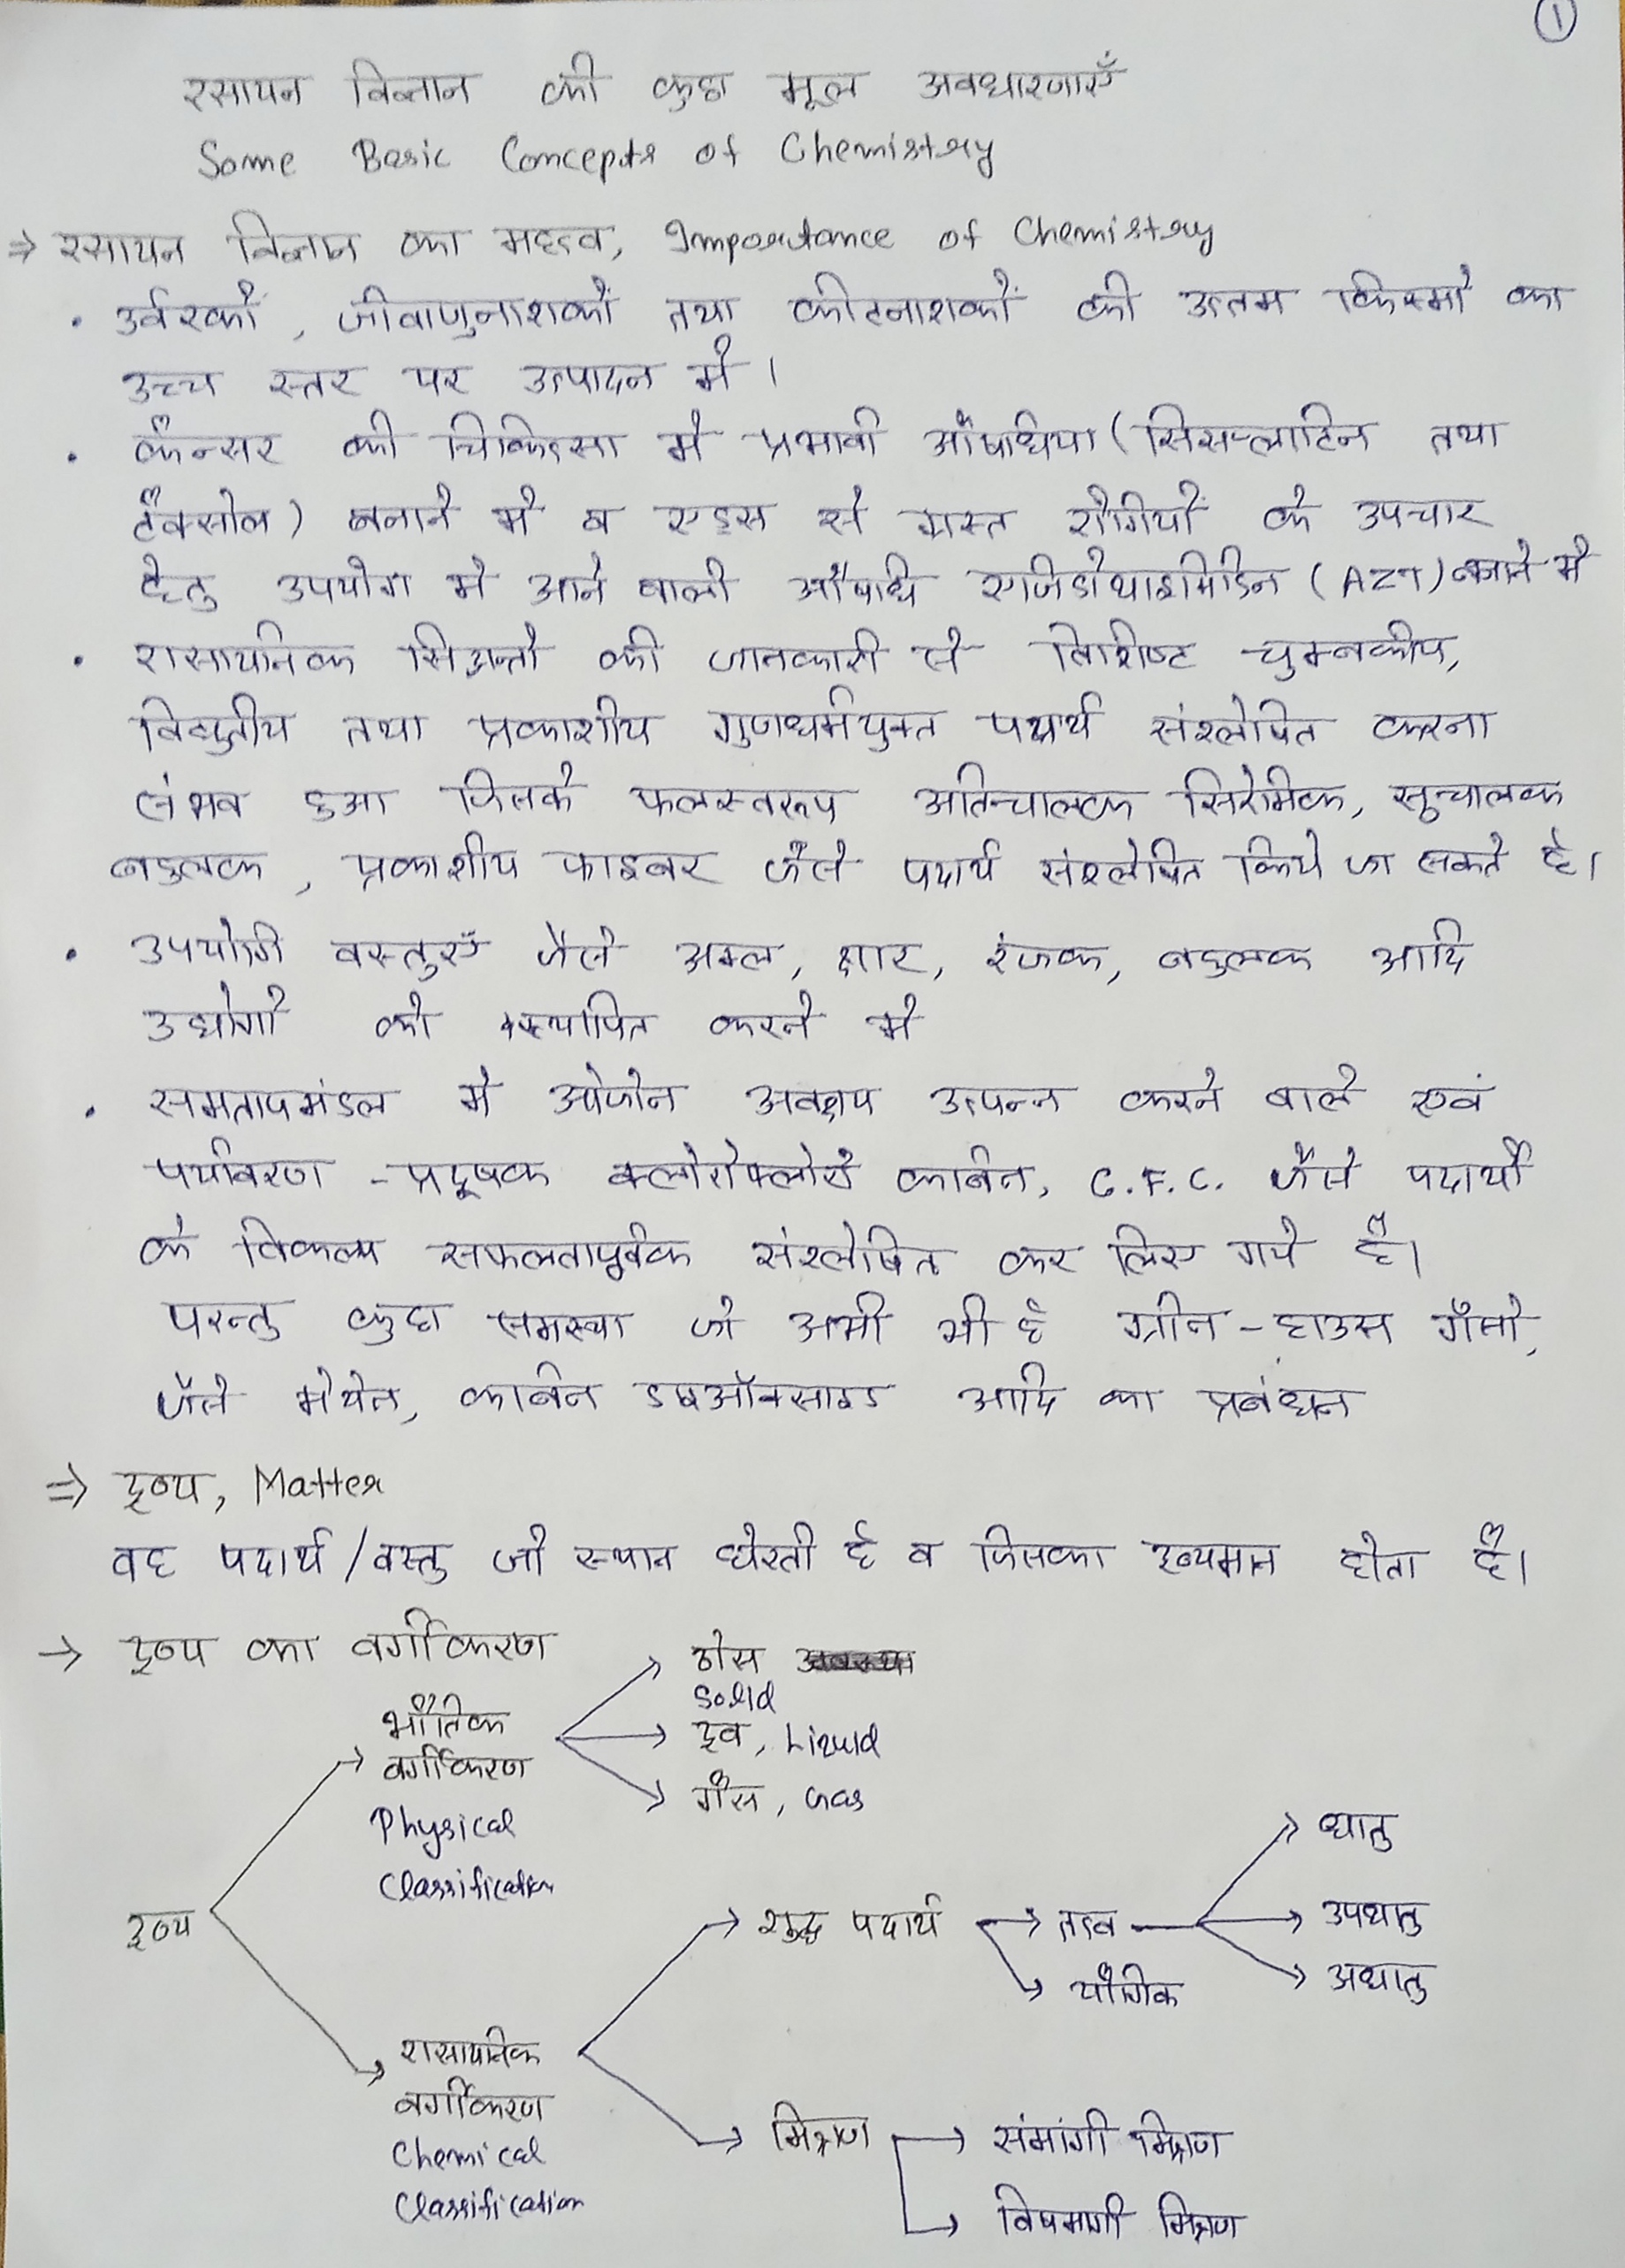 1
रसायन विज्ञान की कुछ मूल अवधारणाएँ
Some Basic Concepts of Chemistry
⇒ रसायन विज्ञान का महत्व, Importance of Chemistry
• उर्वरकों, जीवाणुनाशकों तथा कीटनाशकों की उत्तम किस्मों का
उच्च स्तर पर उत्पादन में।
• कैन्सर की चिकित्सा में प्रभावी औषधिया (सिसप्लाटिन तथा
टैक्सोल) बनाने में व एड्स से ग्रस्त रोगियों के उपचार
हेतु उपयोग में आने वाली औषधि एजिडोथाइमिडिन (AZT) बनाने में
• रासायनिक सिद्धान्तों की जानकारी से विशिष्ट चुम्बकीय,
विद्युतीय तथा प्रकाशीय गुणधर्मयुक्त पदार्थ संश्लेषित करना
संभव हुआ जिसके फलस्वरूप अतिचालक सिरेमिक, सुचालक
बहुलक, प्रकाशीय फाइबर जैसे पदार्थ संश्लेषित किये जा सकते है।
• उपयोगी वस्तुएँ जैसे अम्ल, क्षार, रंजक, बहुलक आदि
उद्योगों को स्थापित करने में
• समतापमंडल में ओजोन अवक्षय उत्पन्न करने वाले एवं
पर्यावरण - प्रदूषक क्लोरोफ्लोरो कार्बन, C.F.C. जैसे पदार्थों
के विकल्प सफलतापूर्वक संश्लेषित कर लिए गये हैं।
परन्तु कुछ समस्या जो अभी भी है ग्रीन - हाउस गैसों,
जैसे मेथेन, कार्बन डाइऑक्साइड आदि का प्रबंधन
⇒ द्रव्य, Matter
वह पदार्थ /वस्तु जो स्थान घेरती है व जिसका द्रव्यमान होता है।
→ द्रव्य का वर्गीकरण
ठोस
Solid
भौतिक
द्रव, Liquid
वर्गीकरण
गैस, Gas
Physical
धातु
Classification
द्रव्य
शुद्ध पदार्थ → तत्व
उपधातु
यौगिक
अधातु
रासायनिक
वर्गीकरण
मिश्रण → संमांगी मिश्रण
Chemical
Classification
विषमांगी मिश्रण